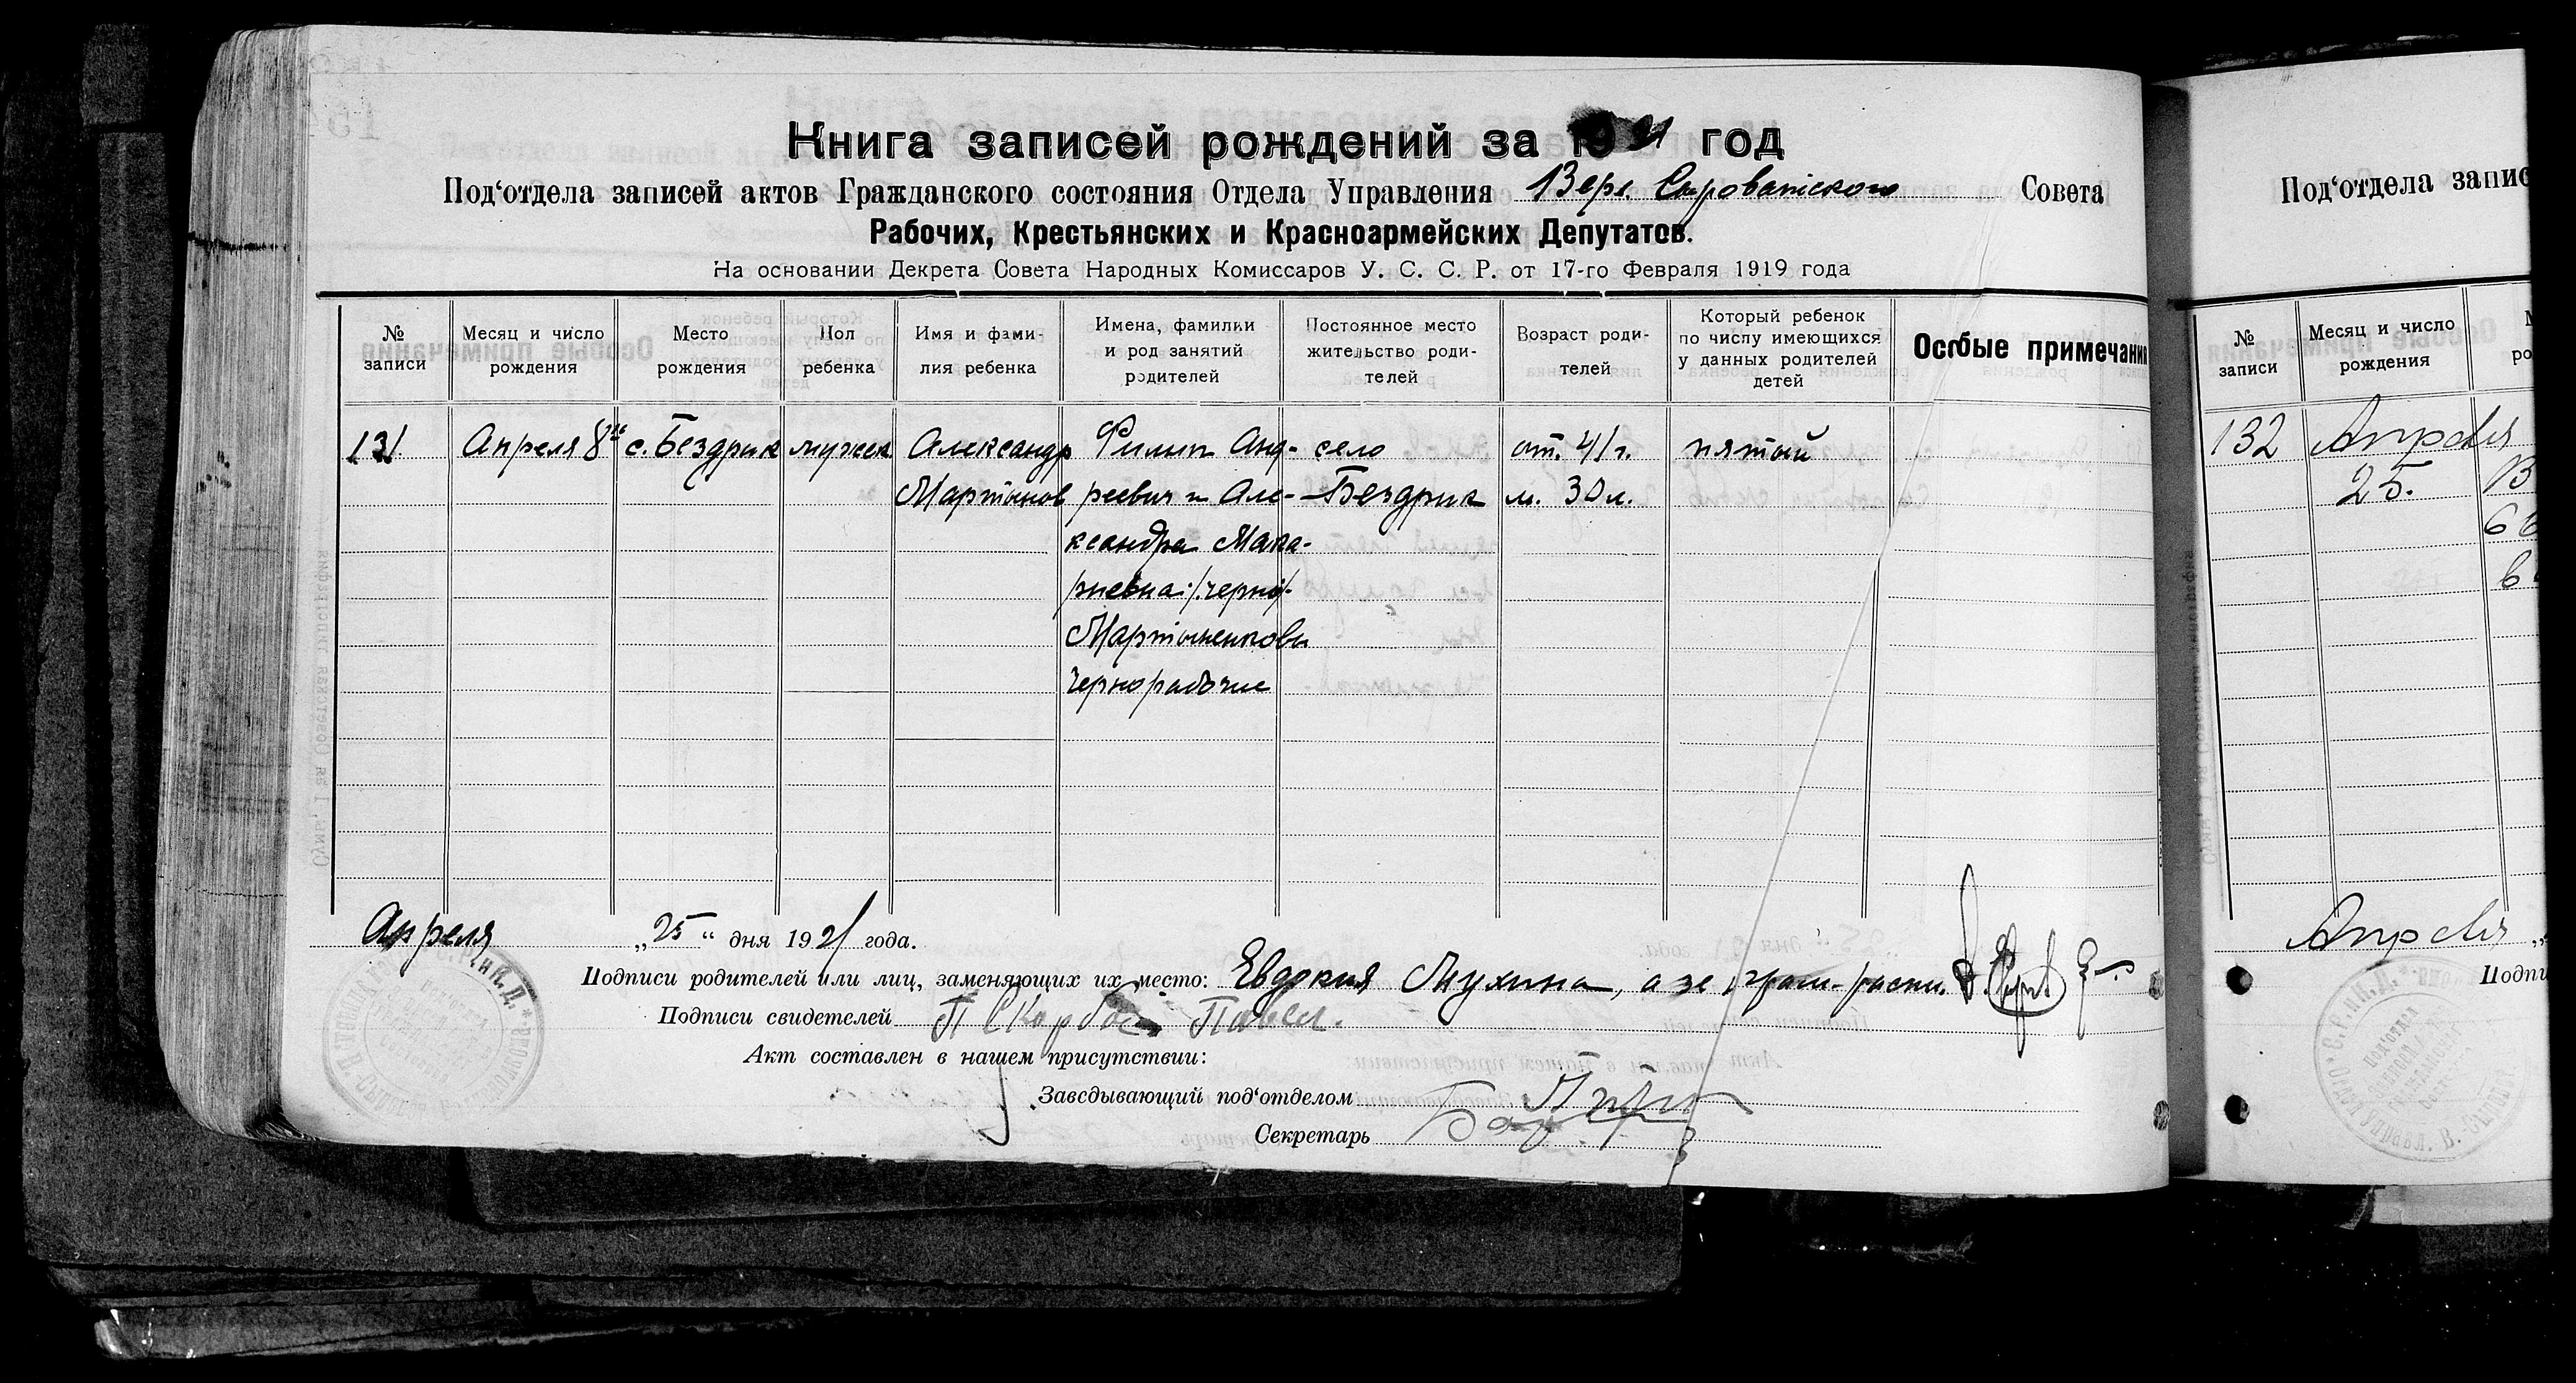 Книга записей рождений за 1921 год
Под‘отдела записей актов Гражданского состояния Отдела Управления Верх. Сыроватского Совета
Рабочих, Крестьянских и Красноармейских Депутатов.
На основании Декрета Совета Народных Комиссаров У. С. С. Р. от 17-го Февраля 1919 года
№ записи
Месяц и число рождения
Место рождения
Пол ребенка
Имя и фамилия ребенка
Имена, фамилии и род занятий родителей
Постоянное место жительство родителей
Возраст родителей
Который ребенок по числу имеющихся у данных родителей детей
Особые примечания
131 Апреля 8го с. Бездрик мужск Александр Филип Анд- село от. 41 г. пятый
Мартынов реевич и Але- Бездрик м. 30 л.
ксандра Мака-
риевна
Мартыненковы
Чернорабочие
Апреля „25“ дня 1921 года.
Подписи родителей или лиц, заменяющих их место: Евдокия
Подписи свидетелей Павел.
Акт составлен в нашем присутствии:
Заведывающий под‘отделом
Секретарь
Под‘отдела запис
№ записи
Месяц и число рождения
132 Апреля
25.
Апреля
Подпи